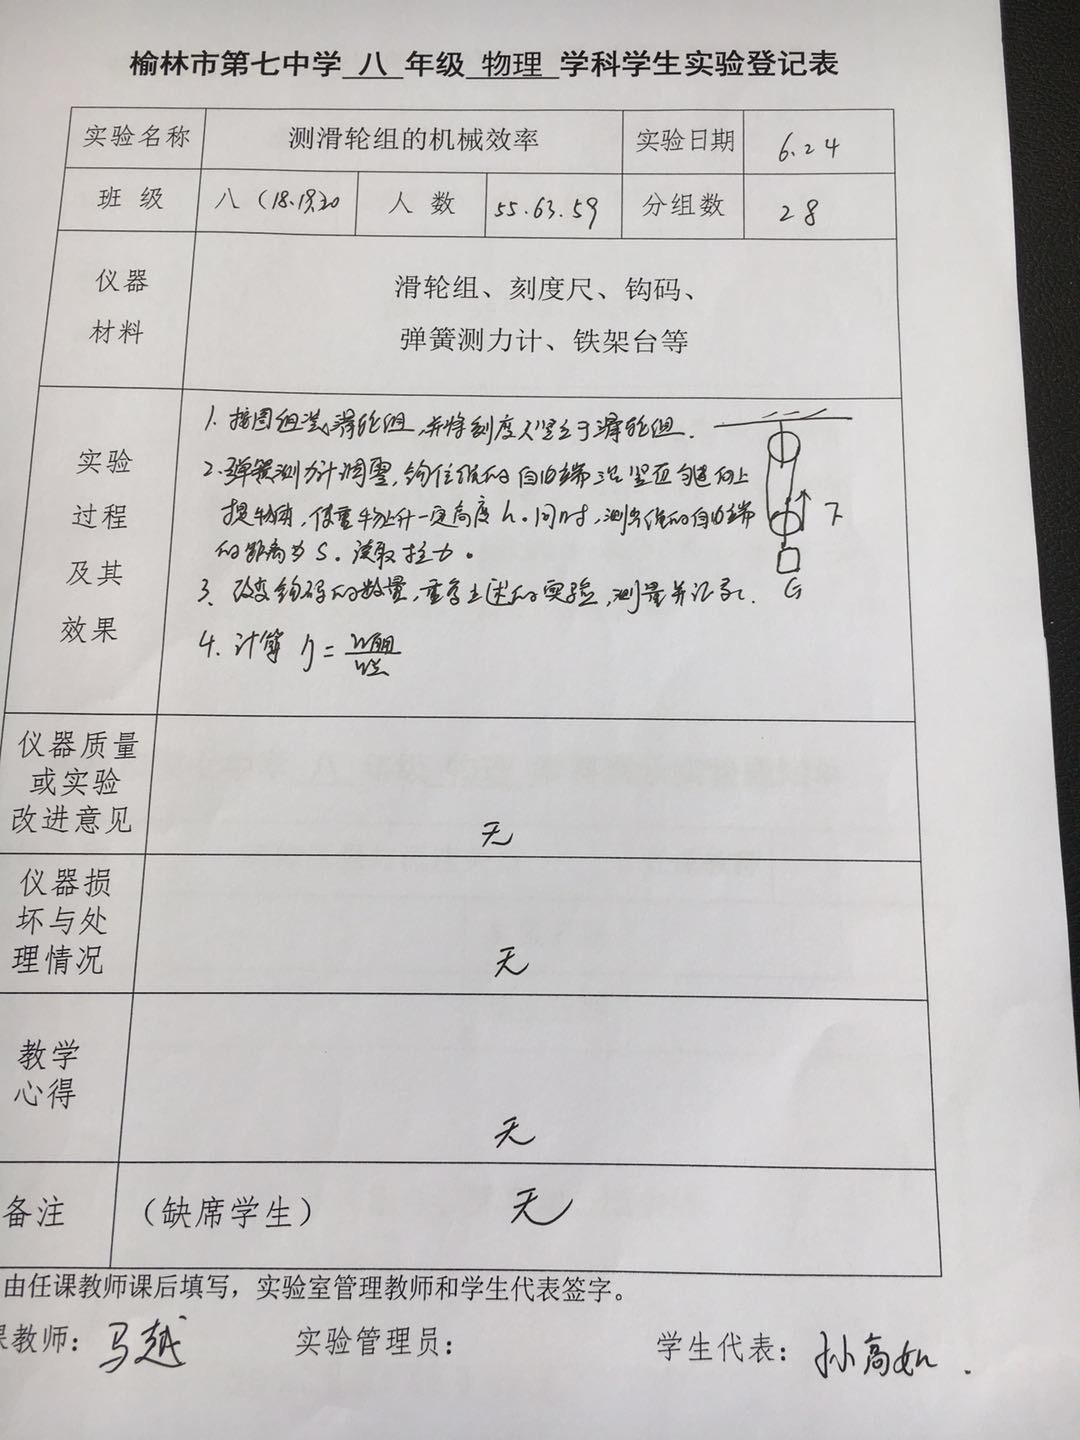 榆林市第七中学 八 年级 物理 学科学生实验登记表
实验名称 测滑轮组的机械效率 实验日期 6.24
班 级 八（18.19.20 人 数 55.63.59 分组数 28
仪器
材料
滑轮组、刻度尺、钩码、
弹簧测力计、铁架台等
实验
过程
及其
效果
1. 按图组装滑轮组,并将刻度尺竖立于滑轮组.
2. 弹簧测力计调零,钩住绳的自由端沿竖直匀速向上
提物体,使重物上升一定高度h。同时,测出绳的自由端
的距离为S。读取拉力。
3. 改变钩码的数量,重复上述的实验,测量并记录.
4. 计算 η=W有用/W总
F
G
仪器质量
或实验
改进意见
无
仪器损
坏与处
理情况
无
教学
心得
无
备注 （缺席学生） 无
由任课教师课后填写，实验室管理教师和学生代表签字。
课教师：马越 实验管理员： 学生代表：孙高如.